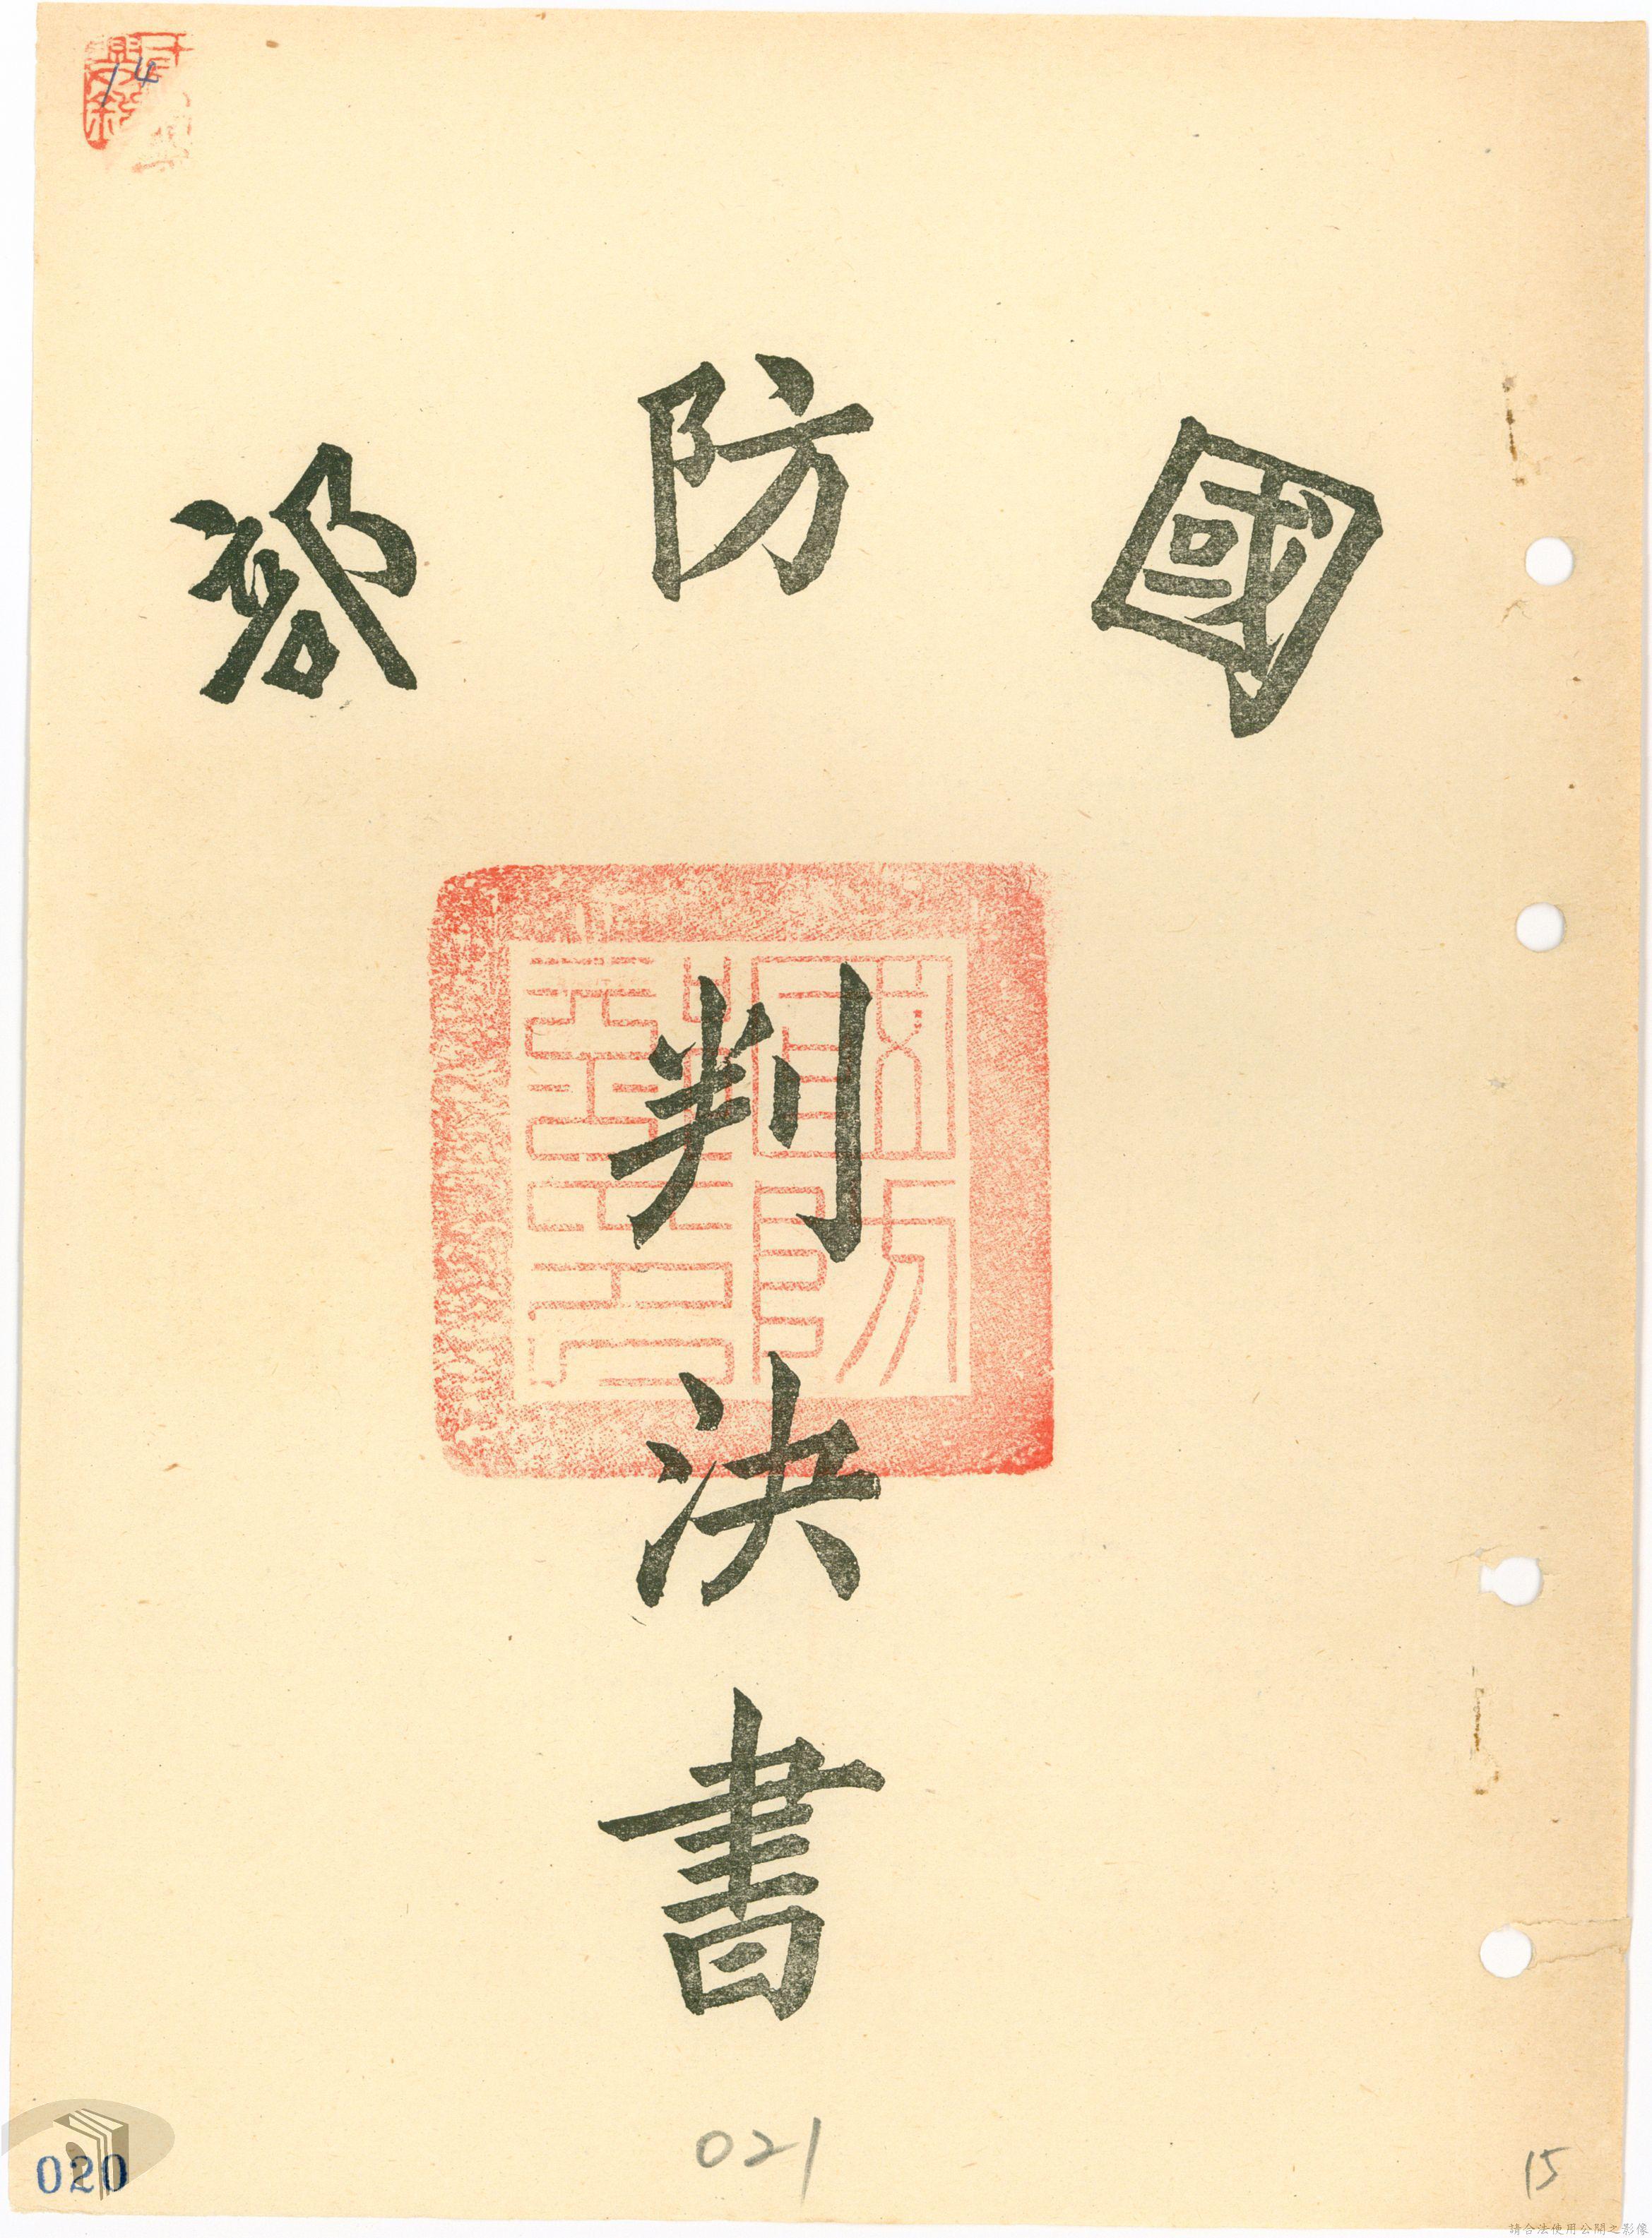 國防部
判決書
14
020
021
15
請合法使用公開之影像